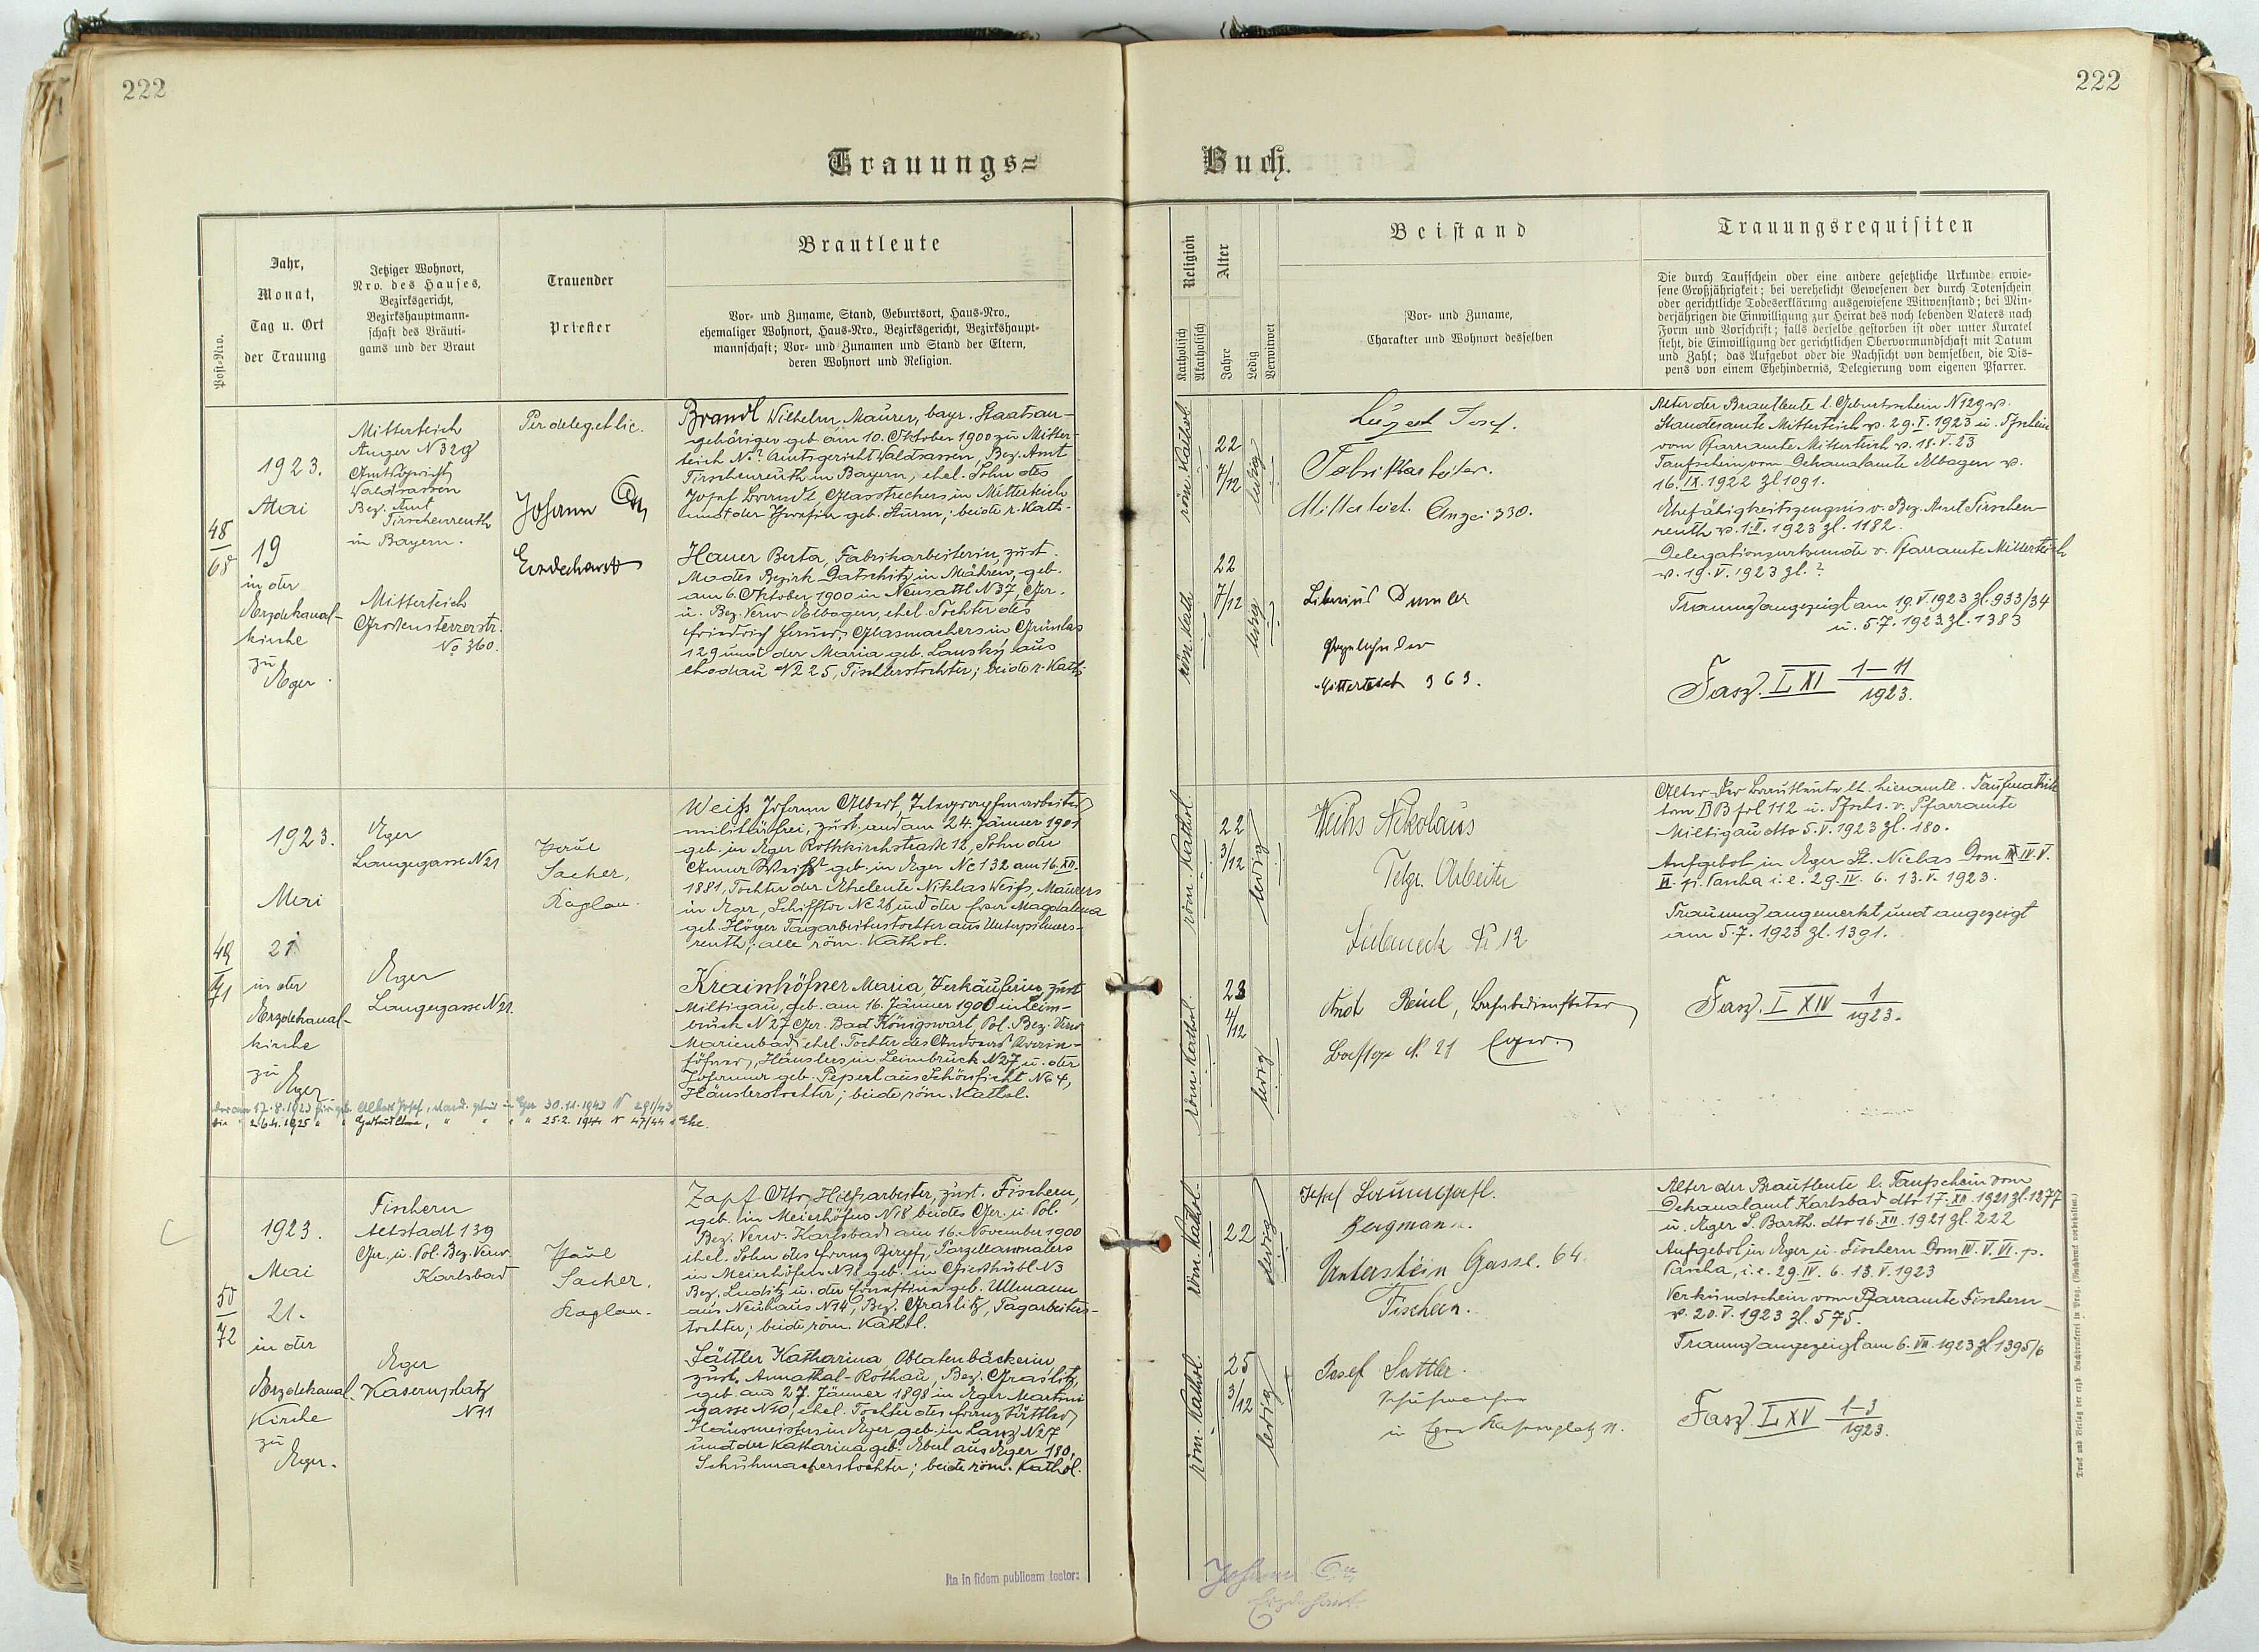 222
222
Trauungs=
Buch.
Post=Nro.
Jahr,
Monat,
Tag u. Ort
der Trauung
Jetziger Wohnort,
Nro. des Hauses,
Bezirksgericht,
Bezirkshauptmann=
schaft des Bräuti=
gams und der Braut
Trauender
Priester
Brautleute
Vor= und Zuname, Stand, Geburtsort, Haus=Nro.,
ehemaliger Wohnort, Haus=Nro., Bezirksgericht, Bezirkshaupt=
mannschaft; Vor= und Zunamen und Stand der Eltern,
deren Wohnort und Religion.
Religion
Katholisch
Akatholisch
Alter
Jahre
Ledig
Verwitwet
Beistand
Vor= und Zuname,
Charakter und Wohnort desselben
Trauungsrequisiten
Die durch Taufschein oder eine andere gesetzliche Urkunde erwie=
sene Großjährigkeit; bei verehelicht Gewesenen der durch Totenschein
oder gerichtliche Todeserklärung ausgewiesene Witwenstand; bei Min=
derjährigen die Einwilligung zur Heirat des noch lebenden Vaters nach
Form und Vorschrift; falls derselbe gestorben ist oder unter Kuratel
steht, die Einwilligung der gerichtlichen Obervormundschaft mit Datum
und Zahl; das Aufgebot oder die Nachsicht von demselben, die Dis=
pens von einem Ehehindernis, Delegierung vom eigenen Pfarrer.
48
68
1923.
Mai
19
in der
Erzdekanal-
kirche
zu
Eger.
Mitterteich
Anger N 329
Amtsgericht
Waldsassen
Bez. Amt
Tirschenreuth
in Bayern.
Mitterteich
Großensterzerstr.
No 360.
Per deleg. et lic.
Johann
Erzdechant
Brandl Wilhelm, Maurer, bayr. Staatsan-
gehöriger geb. am 10. Oktober 1900 zu Mitter-
teich N? Amtsgericht Waldsassen, Bez. Amt
Tirschenreuth in Bayern, ehel. Sohn des
Josef Brandl, Glasstrechers in Mitterteich
und der Josefin geb. Sturm; beide r. Kath.
Hauer Berta, Fabriksarbeiterin, zust.
Modes Bezirk Datschitz in Mähren, geb.
am 6. Oktober 1900 in Neusattl N 37, Ger.
u. Bez. Verw. Elbogen, ehel. Tochter des
Friedrich Hauer, Glasmachers in Grünlas
129 und der Maria geb. Lansky aus
Chodau N 225, Tischlerstochter; beide r. Kath.
röm. Kathol.
22
7/12
ledig
röm. Kath.
22
7/12
ledig
Josef.
Fabrikarbeiter.
Mitterteich. Anger 330.
Liberius
Mitterteich 363.
Alter der Brautleute l. Geburtsschein N 129 v.
Standesamte Mitterteich v. 29. I. 1923 u. Tfschein
vom Pfarramte Mitterteich v. 18. V. 23
Taufschein vom Dekanalamte Elbogen v.
16. IX. 1922 Zl 1091.
Ehefähigkeitszeugnis v. Bez. Amt Tirschen-
reuth v. 1. II. 1923 Zl. 1182.
Delegationsurkunde v. Pfarramte Mitterteich
v. 19. V. 1923 Zl. ?
Trauung angezeigt am 19. V. 1923 Zl. 933/34
u. 5. 7. 1923 Zl. 1383
Fasz. LXI 1-11
1923.
49
71
1923.
Mai
21.
in der
Erzdekanal-
kirche
zu
Eger
Eger
Langegasse N 21
Eger
Langegasse N 21.
Paul
Sacher,
Kaplan.
Weiß Johann Albert, Telegraphenarbeiter,
militärfrei, zust. und am 24. Jänner 1901
geb. in Eger Rothkirchstraße 12, Sohn der
Anna Weiß geb. in Eger Nc 132 am 16. XII.
1881, Tochter der Eheleute Niklas Weiß, Maurers
in Eger, Schifftor Nc 26 und der Magdalena
geb. Höger Tagarbeiterstochter aus Unterpilmers-
reuth; alle röm. Kathol.
Krainhöfner Maria, Verkäuferin, zust.
Miltigau, geb. am 16. Jänner 1900 in Leim-
bruck N 27 Ger. Bad Königswart, Pol. Bez. Verw.
Marienbad, ehel. Tochter des Andreas Krain-
höfner, Häuslers in Leimbruck N 27 u. der
Johanna geb. Peperl aus Schönficht No 4,
Häuslerstochter; beide röm. Kathol.
17. 8. 1923 Albert Josef, in Eger 30. 11. 1943 N 291/43
26. 4. 1925 " " " 25. 2. 1944 N 47/44 Ehe.
röm. Kathol.
22
3/12
ledig
röm. Kathol.
23
4/12
ledig
Weihs Nikolaus
Telgr. Arbeiter
N 12
Bahnbediensteter
N. 21 Eger.
Alter der Brautleute lt. hieramtl. Taufmatrik
tom fol 112 u. Tfsch. v. Pfarramte
Miltigau dto 5. V. 1923 Zl. 180.
Aufgebot in Eger St. Niclas Dom IV. V.
VI. p. Pascha i. e. 29. IV. 6. 13. V. 1923.
Trauung angemerkt und angezeigt
am 5. 7. 1923 Zl. 1391.
Fasz. LXIV 1
1923.
50
72
1923.
Mai
21.
in der
Erzdekanal-
Kirche
zu
Eger.
Fischern
Altstadt 139
Ger. u. Pol. Bez. Verw.
Karlsbad
Eger
Kasernplatz
N 11
Paul
Sacher.
Kaplan.
Zapf Otto, Hilfsarbeiter, zust. Fischern,
geb. in Meierhöfen N 18 beides Ger. u. Pol.
Bez. Verw. Karlsbad am 16. November 1900
ehel. Sohn des Franz Zapf, Porzellanmalers
in Meierhöfen N 18 geb. in Gießhübl N 3
Bez. Luditz u. der Ernestina geb. Ullmann
aus Neuhaus N 14, Bez. Graslitz, Tagarbeiters-
tochter; beide röm. Kathol.
Sättler Katharina, Oblatenbäckerin
zust. Annathal-Rothau, Bez. Graslitz,
geb. am 27. Jänner 1898 in Eger Martini
gasse N 10, ehel. Tochter des Franz Sättler
Hausmeisters in Eger, geb. in Lanz N 27
und der Katharina geb. Eberl aus Eger 180,
Schuhmacherstochter; beide röm. Kathol.
röm. Kathol.
22
ledig
röm. Kathol.
25
3/12
ledig
Josef
Bergmann.
Unterstein Gasse. 64.
Fischern.
Josef Sattler.
in Eger Kasernplatz 11.
Alter der Brautleute l. Taufschein vom
Dekanalamt Karlsbad dto 17. XII. 1921 Zl. 1277
u. Eger S. Barth. dto 16. XII. 1921 Zl. 222
Aufgebot in Eger u. Fischern Dom IV. V. VI. p.
Pascha, i. e. 29. IV. 6. 13. V. 1923
Verkündschein vom Pfarramte Fischern
v. 20. V. 1923 Zl. 575.
Trauung angezeigt am 6. VII. 1923 Zl 1395/6
Fasz. LXV 1-3
1923.
Ita in fidem publicam testor:
Johann
Erzdechant.
Druck und Verlag der erzb. Buchdruckerei in Prag. (Nachdruck vorbehalten.)